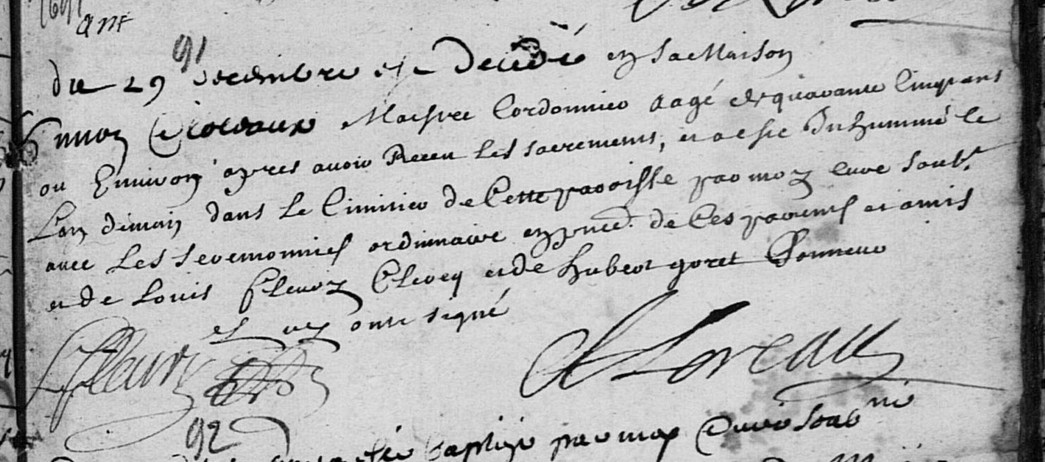 1691
ant
91
du 29 decembre est decedé en sa Maison
Simon Maistre Cordonnier aagé de quarante Cinq ans
ou Environ apres avoir Receu les sacrements, et a este Inhummé le
Len demain dans le Cimitier de Cette paroisse par moy Curé soubs.
avec Les seremonnies ordinnaire en pnce. de Ces parents et amis
et de Louis fleury Clercq et de hubert goret Sonneur
et ont signé
Lfleury Loreau
92
esté baptisé par moy Curé soubsné